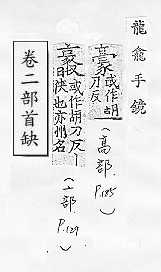 龍龕手鏡
豪或作胡
刀反
(高部 P.185)
或作胡刀反丨
曰俠也亦州名
(亠部 P.129)
卷二部首缺